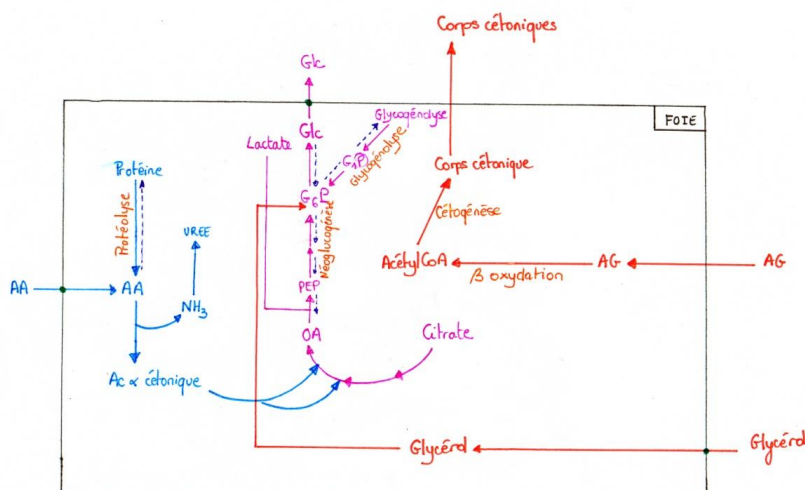 Corps cétoniques
Glc
FOIE
Glycogénolyse
Glc
Lactate
G1P
Glycogénolyse
Corps cétonique
Protéine
G6P
Cétogénèse
Protéolyse
URÉE
Néoglucogénèse
AcétylCoA
β oxydation
AG
AG
AA
AA
NH3
PEP
OA
Citrate
Ac α cétonique
Glycérol
Glycérol